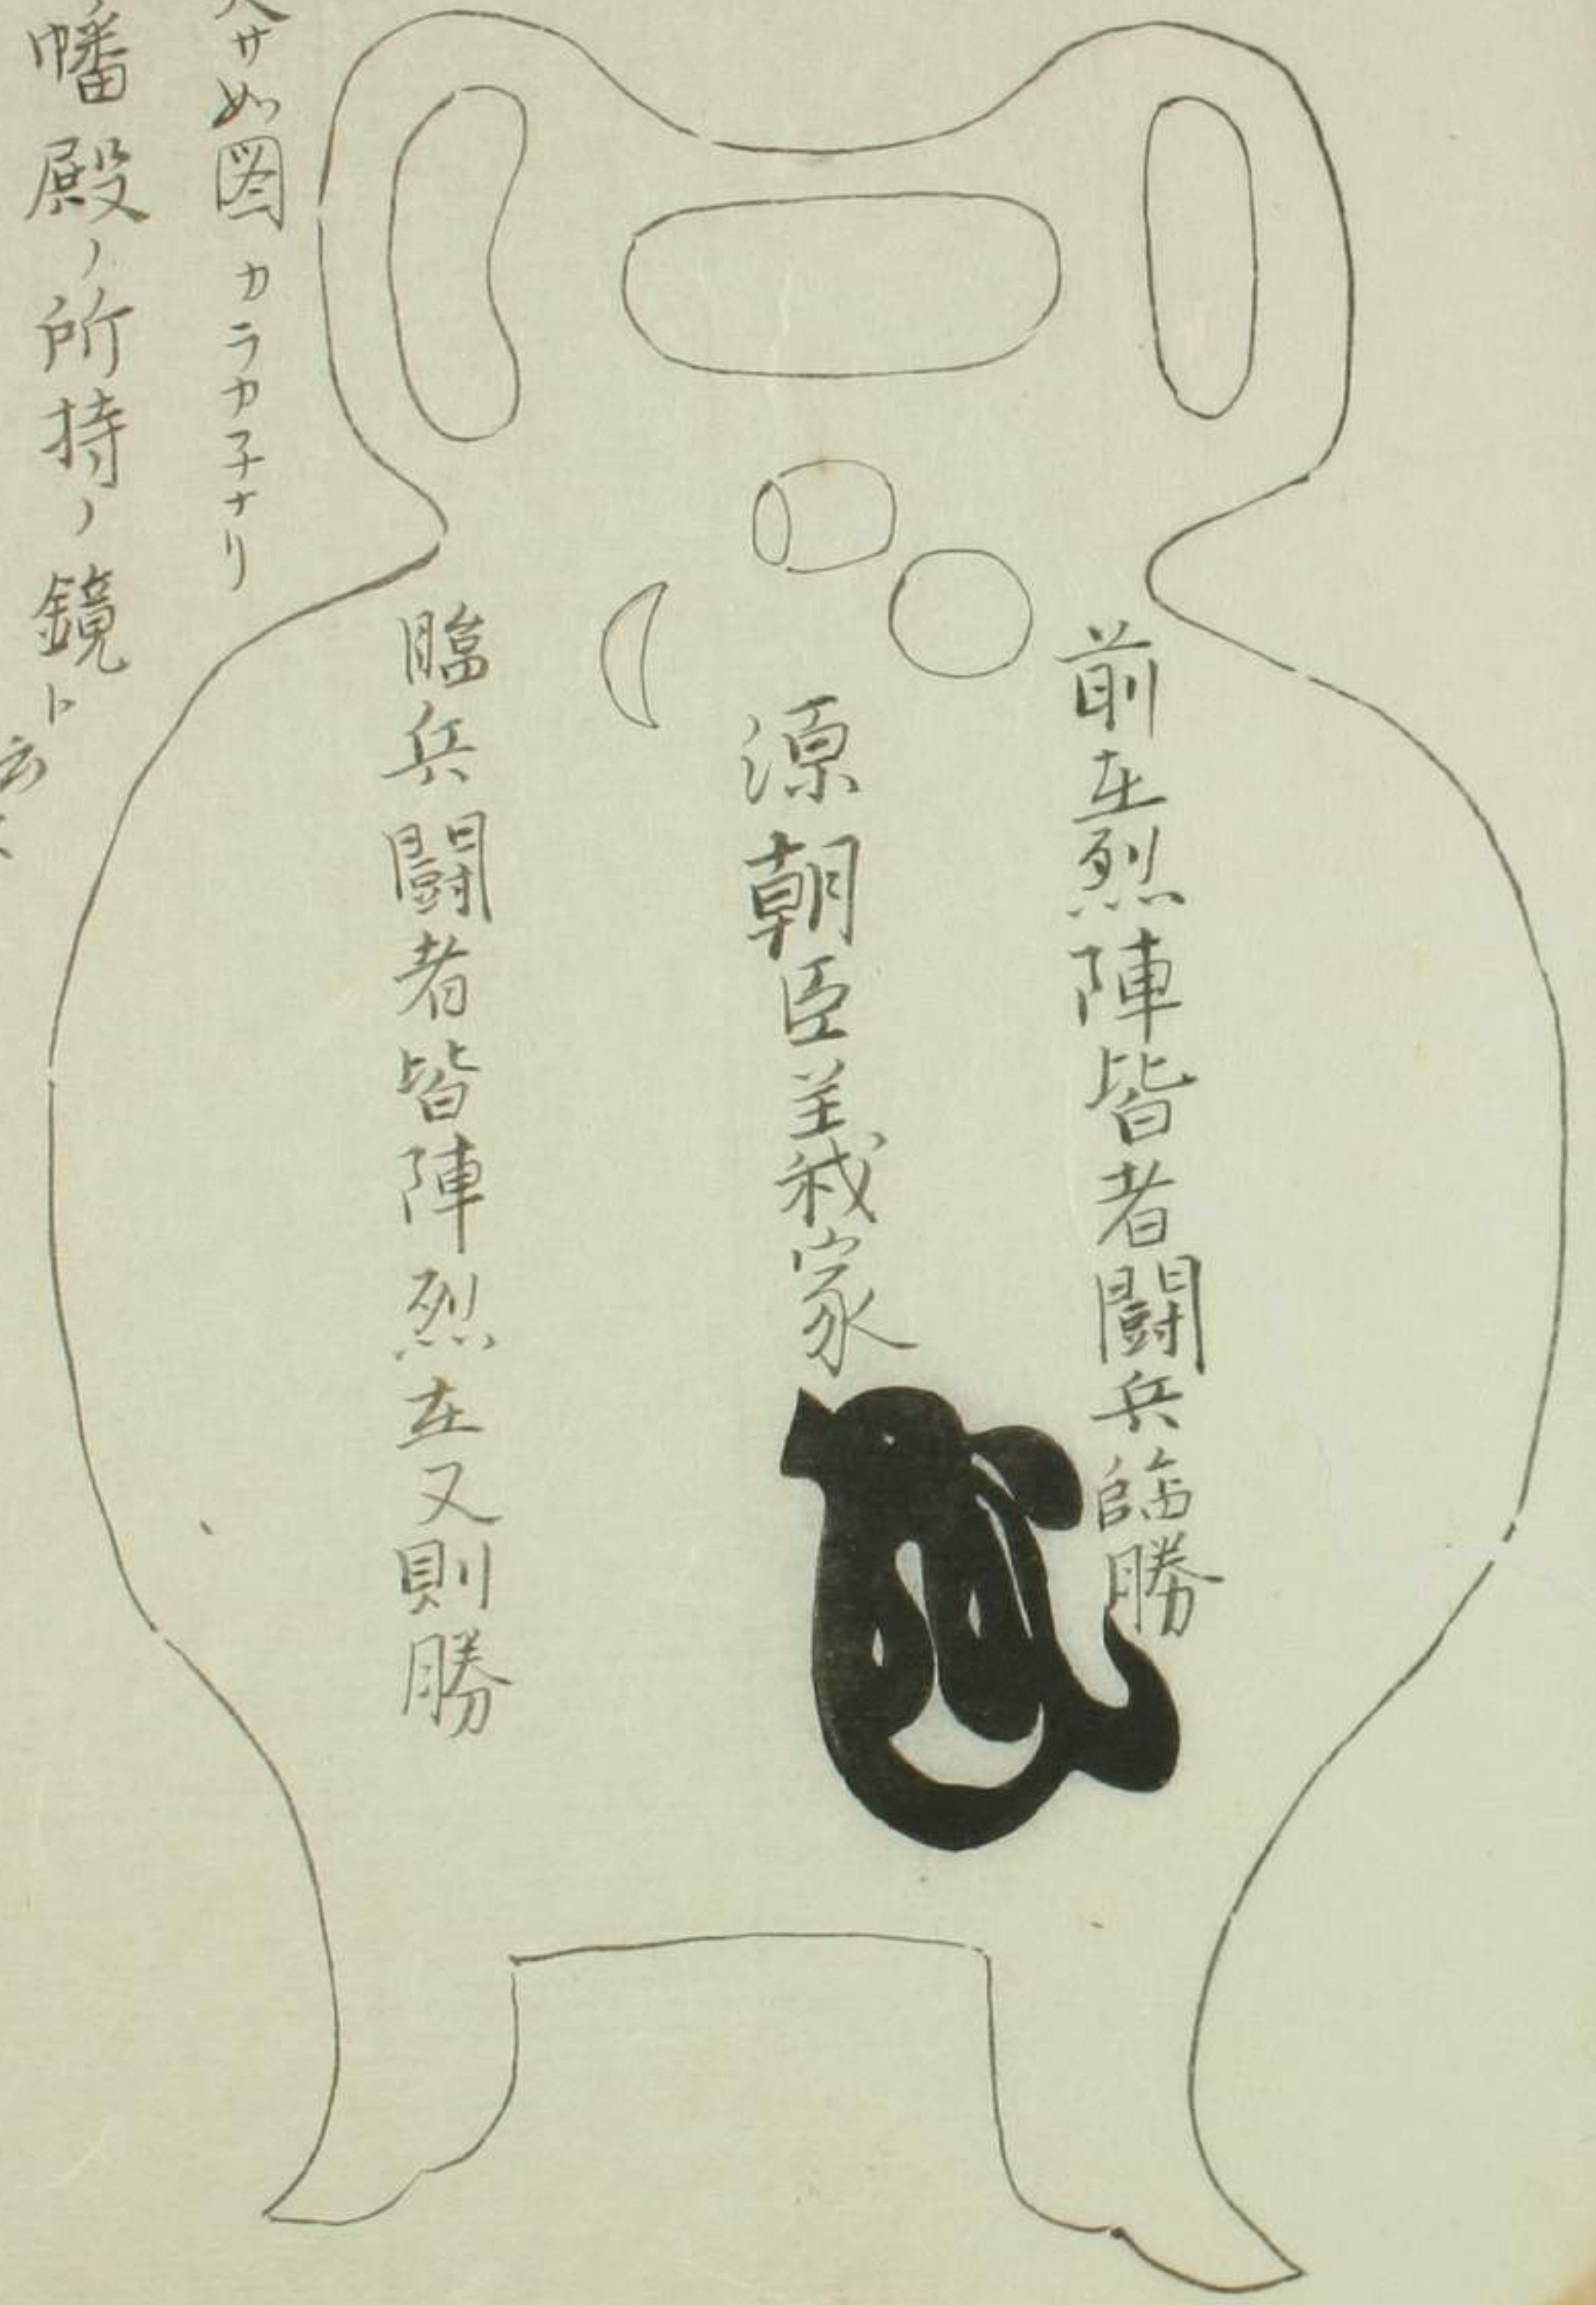 前在烈陣皆者闘兵臨勝
源朝臣義家
臨兵闘者皆陣烈在又則勝
大サ如図カラカ子ナリ
幡殿ノ所持ノ鏡ト云